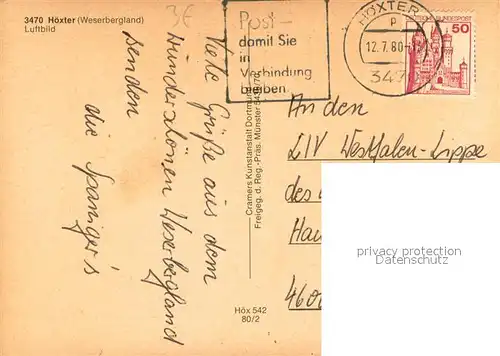 3470 Höxter (Weserbergland)
Luftbild
3€
Post-
damit Sie
in
Verbindung
bleiben
HÖXTER
P
12.7.80-
347
DEUTSCHE BUNDESPOST
50
Viele Grüße aus dem
wunderschönen Weserbergland
senden
die Spaniger's
Cramers Kunstanstalt Dortmund
Freigeg. d. Reg.-Präs. Münster
Höx 542
80/2
An den
LIV Westfalen-Lippe
des
Hau
460
privacy protection
VORSCHAU